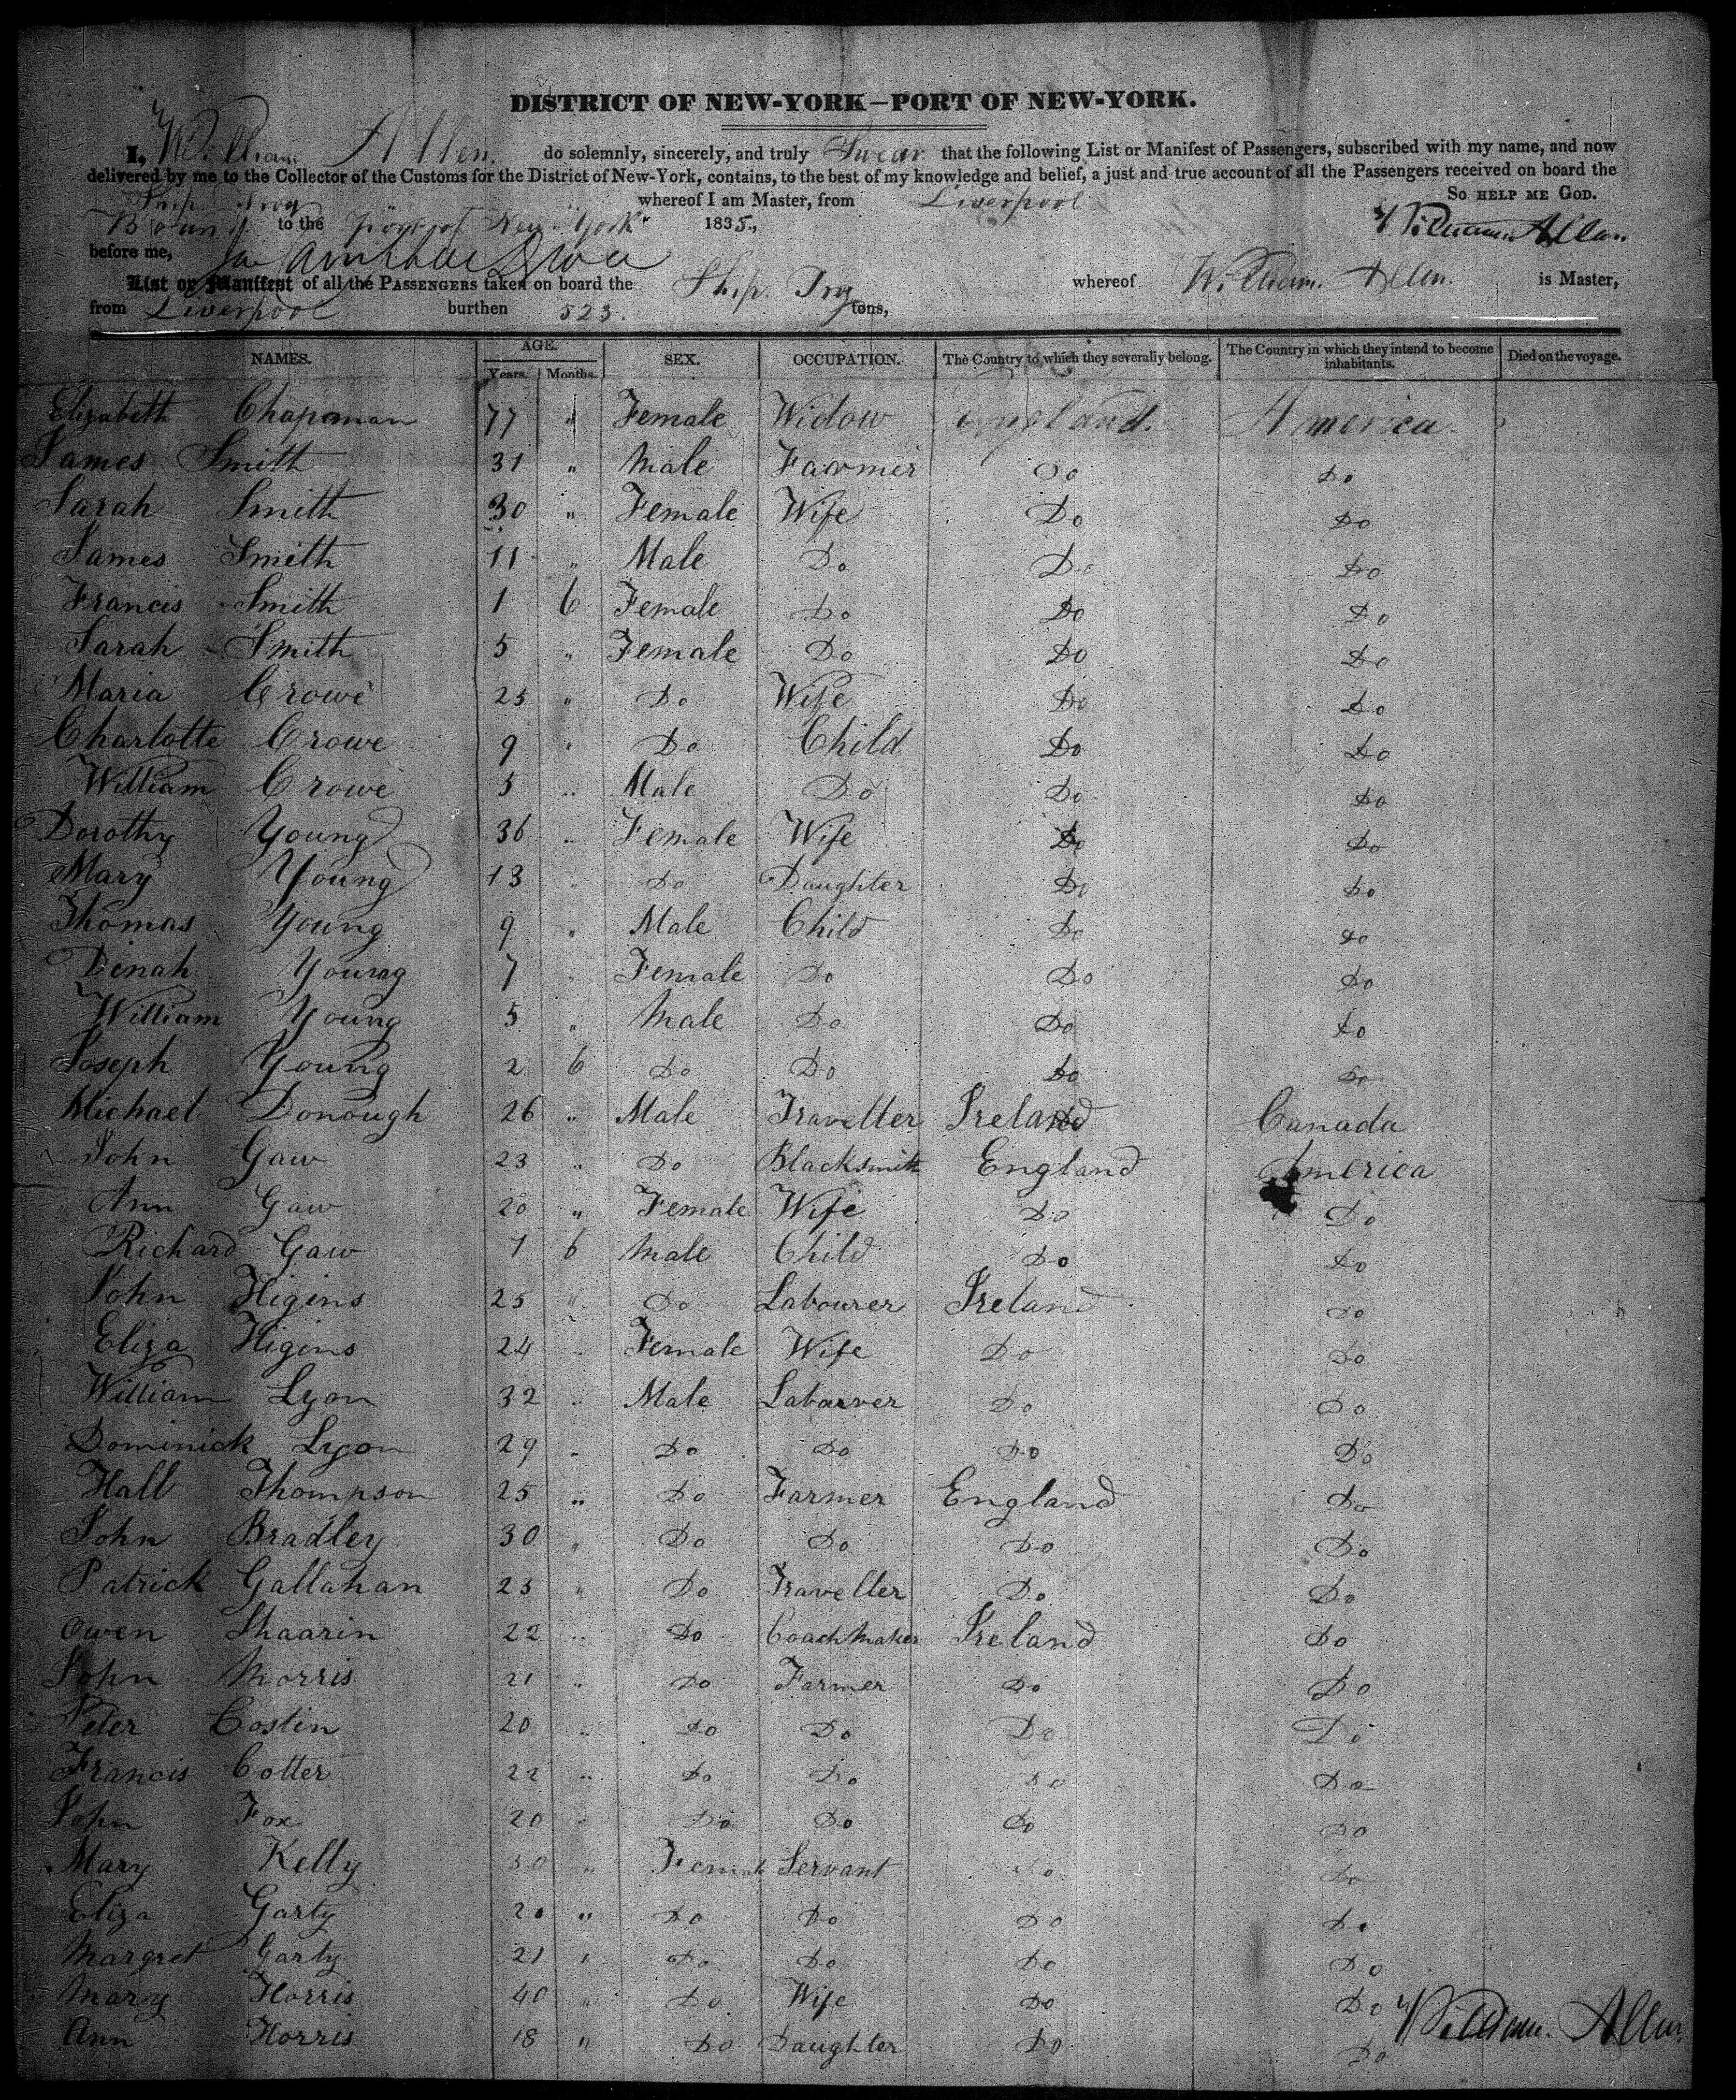 DISTRICT OF NEW-YORK—PORT OF NEW-YORK.
I, William Allen. do solemnly, sincerely, and truly Swear that the following List or Manifest of Passengers, subscribed with my name, and now
delivered by me to the Collector of the Customs for the District of New-York, contains, to the best of my knowledge and belief, a just and true account of all the Passengers received on board the
Ship Troy whereof I am Master, from Liverpool So HELP ME GOD.
Bound to the port of New York 1835., William Allen.
before me,
List or Manifest of all the PASSENGERS taken on board the Ship. Troy whereof William. Allen. is Master,
from Liverpool burthen 523. tons,
NAMES. AGE. Years. Months. SEX. OCCUPATION. The Country to which they severally belong. The Country in which they intend to become inhabitants. Died on the voyage.
Elizabeth Chapman 77 " Female Widow England. America.
James Smith 31 " Male Farmer Do Do
Sarah Smith 30 " Female Wife Do Do
James Smith 11 " Male Do Do Do
Francis Smith 1 6 Female Do Do Do
Sarah Smith 5 " Female Do Do Do
Maria Crowe 25 " Do Wife Do Do
Charlotte Crowe 9 " Do Child Do Do
William Crowe 5 " Male Do Do Do
Dorothy Young 36 " Female Wife Do Do
Mary Young 13 " Do Daughter Do Do
Thomas Young 9 " Male Child Do Do
Dinah Young 7 " Female Do Do Do
William Young 5 " Male Do Do Do
Joseph Young 2 6 Do Do Do Do
Michael Donough 26 " Male Traveller Ireland Canada
John Gaw 23 " Do Blacksmith England America
Ann Gaw 20 " Female Wife Do Do
Richard Gaw 1 6 Male Child Do Do
John Higins 25 " Do Labourer Ireland Do
Eliza Higins 24 " Female Wife Do Do
William Lyon 32 " Male Labourer Do Do
Dominick Lyon 29 " Do Do Do Do
Hall Thompson 25 " Do Farmer England Do
John Bradley 30 " Do Do Do Do
Patrick Gallahan 25 " Do Traveller Do Do
Owen Shaarin 22 " Do Coach Maker Ireland Do
John Morris 21 " Do Farmer Do Do
Peter Costin 20 " Do Do Do Do
Francis Cotter 22 " Do Do Do Do
John Fox 20 " Do Do Do Do
Mary Kelly 30 " Female Servant Do Do
Eliza Garty 20 " Do Do Do Do
Margret Garty 21 " Do Do Do Do
Mary Horris 40 " Do Wife Do Do William. Allen
Ann Horris 18 " Do Daughter Do Do